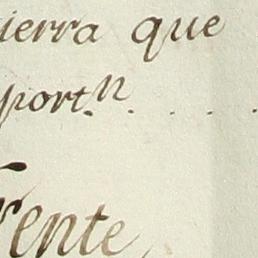 ierra que
port.n . . . .
rente,